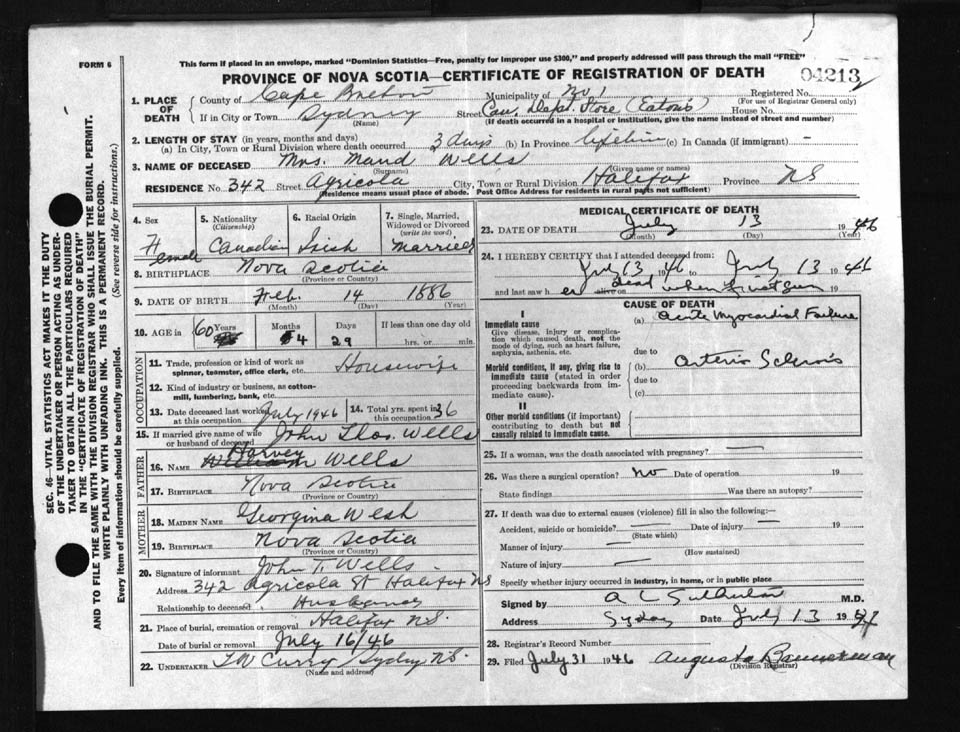 FORM 6
This form if placed in an envelope, marked "Dominion Statistics—Free, penalty for improper use $300," and properly addressed will pass through the mail "FREE"
PROVINCE OF NOVA SCOTIA—CERTIFICATE OF REGISTRATION OF DEATH
04213
1. PLACE OF DEATH
County of Cape Breton Municipality of No 1 Registered No.
(For use of Registrar General only)
If in City or Town Sydney Street Can. Dept. Store (Eaton's) House No.
(Name) (If death occurred in a hospital or institution, give the name instead of street and number)
2. LENGTH OF STAY (in years, months and days)
(a) In City, Town or Rural Division where death occurred 3 days (b) In Province lifetime (c) In Canada (if immigrant) —
3. NAME OF DECEASED Mrs. Maud Wells
(Surname) (Given name or names)
RESIDENCE No. 342 Street Agricola City, Town or Rural Division Halifax Province NS
(Residence means usual place of abode. Post Office Address for residents in rural parts not sufficient)
4. Sex Female
5. Nationality (Citizenship) Canadian
6. Racial Origin Irish
7. Single, Married, Widowed or Divorced (write the word) Married
8. BIRTHPLACE Nova Scotia
(Province or Country)
9. DATE OF BIRTH Feb. 14 1886
(Month) (Day) (Year)
10. AGE in 60 Years 4 Months 29 Days If less than one day old
hrs. or min.
OCCUPATION
11. Trade, profession or kind of work as spinner, teamster, office clerk, etc. Housewife
12. Kind of industry or business, as cotton-mill, lumbering, bank, etc.
13. Date deceased last worked at this occupation July 1946
14. Total yrs. spent in this occupation 36
15. If married give name of wife or husband of deceased John Thos. Wells
FATHER
16. NAME William Harvey Wells
17. BIRTHPLACE Nova Scotia
(Province or Country)
MOTHER
18. MAIDEN NAME Georgina
19. BIRTHPLACE Nova Scotia
(Province or Country)
20. Signature of informant John T. Wells
Address 342 Agricola St Halifax NS
Relationship to deceased Husband
21. Place of burial, cremation or removal Halifax N.S.
Date of burial or removal July 16/46
22. UNDERTAKER T W Curry Sydney N.S.
(Name and address)
MEDICAL CERTIFICATE OF DEATH
23. DATE OF DEATH July 13 1946
(Month) (Day) (Year)
24. I HEREBY CERTIFY that I attended deceased from:
July 13 1946 to July 13 1946
and last saw h er alive on dead when first seen 19
CAUSE OF DEATH
I
Immediate cause
Give disease, injury or complication which caused death, not the mode of dying, such as heart failure, asphyxia, asthenia, etc.
(a) Acute Myocardial Failure
due to
Morbid conditions, if any, giving rise to immediate cause (stated in order proceeding backwards from immediate cause).
(b) Arterio Sclerosis
due to
(c)
II
Other morbid conditions (if important) contributing to death but not causally related to immediate cause.
25. If a woman, was the death associated with pregnancy? —
26. Was there a surgical operation? no Date of operation 19
State findings Was there an autopsy?
27. If death was due to external causes (violence) fill in also the following:—
Accident, suicide or homicide? — Date of injury — 19
(State which)
Manner of injury —
(How sustained)
Nature of injury —
Specify whether injury occurred in industry, in home, or in public place
Signed by A C M.D.
Address Sydney Date July 13 19
28. Registrar's Record Number
29. Filed July 31 1946 Augusta Bannerman
(Division Registrar)
SEC. 46—VITAL STATISTICS ACT MAKES IT THE DUTY
OF THE UNDERTAKER OR PERSON ACTING AS UNDER-
TAKER TO OBTAIN ALL THE PARTICULARS REQUIRED
IN THE "CERTIFICATE OF REGISTRATION OF DEATH"
AND TO FILE THE SAME WITH THE DIVISION REGISTRAR WHO SHALL ISSUE THE BURIAL PERMIT.
WRITE PLAINLY WITH UNFADING INK. THIS IS A PERMANENT RECORD.
Every item of information should be carefully supplied. (See reverse side for instructions.)